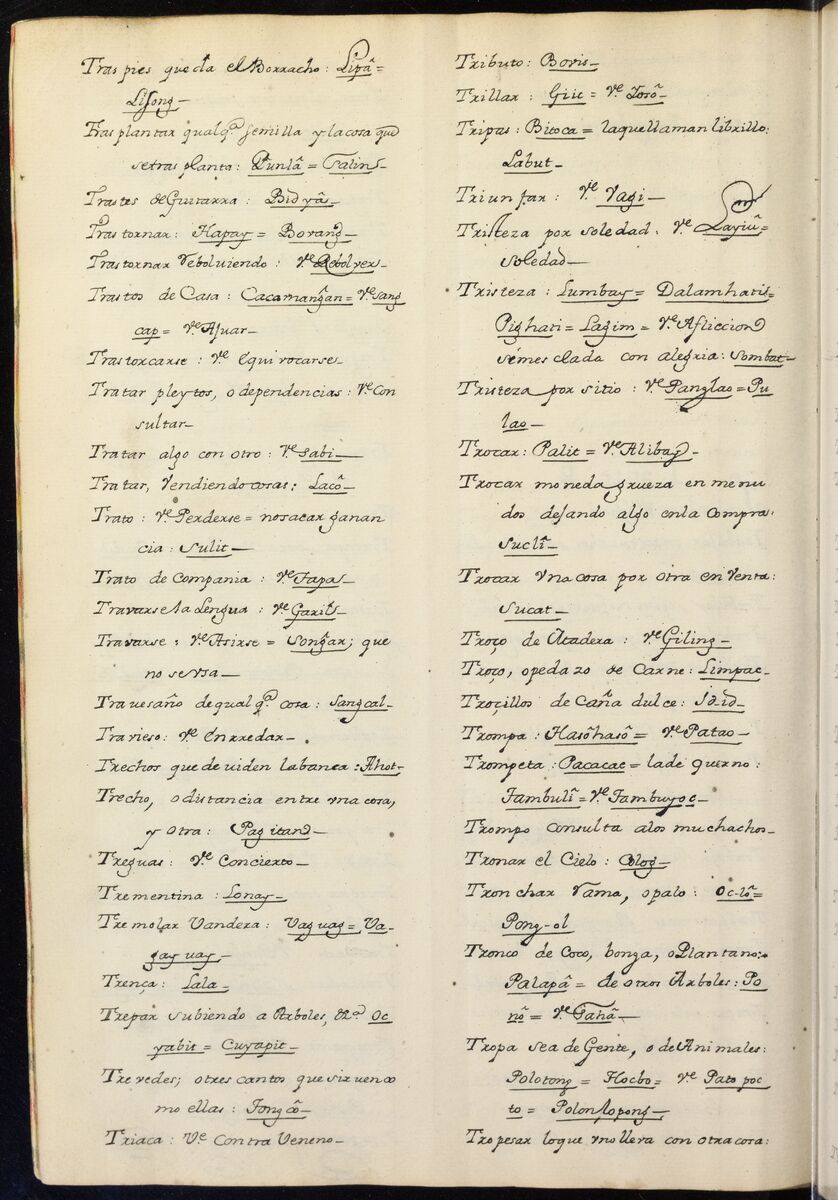 Tras pies que da el Borracho: Lipâ=
Lisong_
Trasplantar qualqa. semilla y la cosa que
setras planta: Punlâ = Talins_
Trastes de Guitarra: Bidyâs_
Trastornar: Hapay = Borang_
Trastornar rebolviendo: Ve. Rebolver_
Trastos de Casa: Cacamangan = Ve. sang
cap = Ve. Ajuar_
Trastorcarse: Ve. equivocarse_
Tratar pleytos, o dependencias: Ve. Con
sultar_
Tratar algo con otro: Ve. sabi_
Tratar, Vendiendo cosas: Lacô_
Trato: Ve. Perderse = no sacar ganan
cia: Sulit_
Trato de Compania: Ve. Sapas_
Travarse la Lengua: Ve. Garils_
Travarse: Ve. Asirse = Songar; que
no se vsa_
Travesaño de qualqa. cosa: Sangcal_
Travieso: Ve. enrredar_
Trechos que deviden labanca: Ahot_
Trecho, o distancia entre vna cosa,
y otra: Pagitand_
Treguas: Ve. Concierto_
Trementina: Lonay_
Tremolar Vandera: Vaguag = Va-
gay vay_
Trença: Lala_
Trepar subiendo a Arboles, &a. Oc
yabit = Cuyapit_
Trevedes; otres cantos que sirven co
mo ellas: Tongco_
Triaca: Ve. Contra Veneno_
Tributo: Bovis_
Trillar: Giic = Ve. Tosô_
Tripas: Bitoca = laquellaman librillo:
Labut_
Triunfar: Ve. Vagi_
Tristeza por soledad: Ve. Layiû=
soledad_
Tristeza: Lumbay = Dalamhatis=
Pighati = Lagim = Ve. Afliccion
sémesclada con alegria: sombat_
Tristeza por sitio: Ve. Panglao = Pu
lao_
Trocar: Palit = Ve. Alibay_
Trocar moneda grueza en menu
dos dejando algo enla Compra:
Suclî_
Trocar vna cosa por otra en Venta:
Sucat_
Troço de Atadera: Ve. Giling_
Troço, opedazo de Carne: Limpac_
Troçillos de Caña dulce: Id-id_
Trompa: Hasôhasô = Ve. Patao_
Trompeta: Pacacac = lade querno:
Tambulî = Ve. Tambuyoc_
Trompo consulta alos muchachos_
Tronar el Cielo: Colog_
Tronchar rama, o palo: Oc-lô=
Pong-ol
Tronco de Coco, bonga, o Plantano:
Palapâ = de otros Arboles: Po
nô = Ve. Tahâ_
Tropa sea de Gente, o de Animales:
Polotong = Hocbo = Ve. Pato poc
to = Polonpong_
Tropesar loque vno lleva con otra cosa: